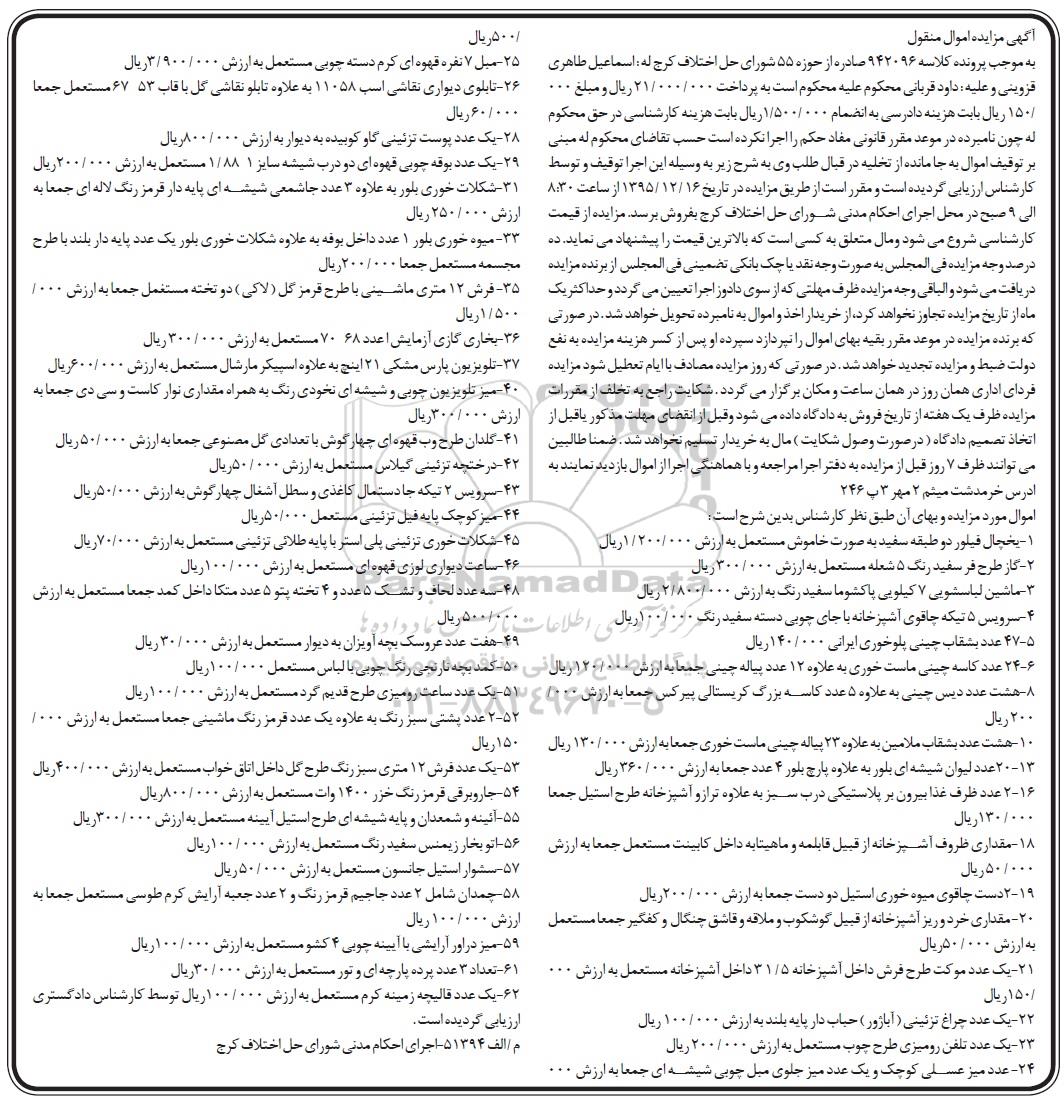 آگهی مزایده اموال منقول
به موجب پرونده کلاسه ۹۴۲۰۹۶ صادره از حوزه ۵۵ شورای حل اختلاف کرج له : اسماعیل طاهری
قزوینی و علیه : داود قربانی محکوم علیه محکوم است به پرداخت ۲۱/۰۰۰/۰۰۰ ریال و مبلغ ۰۰۰
/۱۵۰ ریال بابت هزینه دادرسی به انضمام ۱/۵۰۰/۰۰۰ریال بابت هزینه کارشناسی در حق محکوم
له چون نامبرده در موعد مقرر قانونی مفاد حکم را اجرا نکرده است حسب تقاضای محکوم له مبنی
بر توقیف اموال به جا مانده از تخلیه در قبال طلب وی به شرح زیر به وسیله این اجرا توقیف و توسط
کارشناس ارزیابی گردیده است و مقرر است از طریق مزایده در تاریخ ۱۳۹۵/۱۲/۱۶ از ساعت ۸:۳۰
الی ۹ صبح در محل اجرای احکام مدنی شورای حل اختلاف کرج بفروش برسد. مزایده از قیمت
کارشناسی شروع می شود ومال متعلق به کسی است که بالاترین قیمت را پیشنهاد می نماید. ده
درصد وجه مزایده فی المجلس به صورت وجه نقد یا چک بانکی تضمینی فی المجلس از برنده مزایده
دریافت می شود و الباقی وجه مزایده ظرف مهلتی که از سوی دادورز اجرا تعیین می گردد و حداکثر یک
ماه از تاریخ مزایده تجاوز نخواهد کرد، از خریدار اخذ و اموال به نامبرده تحویل خواهد شد. در صورتی
که برنده مزایده در موعد مقرر بقیه بهای اموال را نپردازد سپرده او پس از کسر هزینه مزایده به نفع
دولت ضبط و مزایده تجدید خواهد شد. در صورتی که روز مزایده مصادف با ایام تعطیل شود مزایده
فردای اداری همان روز در همان ساعت و مکان برگزار می گردد. شکایت راجع به تخلف از مقررات
مزایده ظرف یک هفته از تاریخ فروش به دادگاه داده می شود وقبل از انقضای مهلت مذکور یاقبل از
اتخاذ تصمیم دادگاه (درصورت وصول شکایت) مال به خریدار تسلیم نخواهد شد. ضمنا طالبین
می توانند ظرف ۷ روز قبل از مزایده به دفتر اجرا مراجعه و با هماهنگی اجرا از اموال بازدید نمایند به
ادرس خرمدشت میثم ۲ مهر ۳ پ ۲۴۶
اموال مورد مزایده و بهای آن طبق نظر کارشناس بدین شرح است:
۱-یخچال فیلور دو طبقه سفید به صورت خاموش مستعمل به ارزش ۱/۲۰۰/۰۰۰ریال
۲-گاز طرح فر سفید رنگ ۵ شعله مستعمل به ارزش ۳۰۰/۰۰۰ ریال
۳-ماشین لباسشویی ۷ کیلویی پاکشوما سفید رنگ به ارزش ۲/۸۰۰/۰۰۰ ریال
۴-سرویس ۵ تیکه چاقوی آشپزخانه با جای چوبی دسته سفید رنگ ۱۰۰/۰۰۰ریال
۵-۴۷ عدد بشقاب چینی پلوخوری ایرانی ۱۴۰/۰۰۰ریال
۶-۲۴ عدد کاسه چینی ماست خوری به علاوه ۱۲ عدد پیاله چینی جمعا به ارزش ۱۲۰/۰۰۰ ریال
۸-هشت عدد دیس چینی به علاوه ۵ عدد کاسه بزرگ کریستالی پیرکس جمعا به ارزش ۰۰۰/
۲۰۰ ریال
۱۰-هشت عدد بشقاب ملامین به علاوه ۲۳ پیاله چینی ماست خوری جمعا به ارزش ۱۳۰/۰۰۰ ریال
۱۳-۲۰عدد لیوان شیشه ای بلور به علاوه پارچ بلور ۴ عدد جمعا به ارزش ۳۶۰/۰۰۰ریال
۱۶-۲ عدد ظرف غذا بیرون بر پلاستیکی درب سبز به علاوه ترازو آشپزخانه طرح استیل جمعا
۱۳۰/۰۰۰ریال
۱۸-مقداری ظروف آشپزخانه از قبیل قابلمه و ماهیتابه داخل کابینت مستعمل جمعا به ارزش
۵۰/۰۰۰ ریال
۱۹-۲دست چاقوی میوه خوری استیل دو دست جمعا به ارزش ۲۰۰/۰۰۰ریال
۲۰-مقداری خرد و ریز آشپزخانه از قبیل گوشکوب و ملاقه و قاشق چنگال و کفگیر جمعا مستعمل
به ارزش ۵۰/۰۰۰ریال
۲۱-یک عدد موکت طرح فرش داخل آشپزخانه ۳۱/۵ داخل آشپزخانه مستعمل به ارزش ۰۰۰
/۱۵۰ریال
۲۲-یک عدد چراغ تزئینی (آباژور) حباب دار پایه بلند به ارزش ۱۰۰/۰۰۰ ریال
۲۳-یک عدد تلفن رومیزی طرح چوب مستعمل به ارزش ۲۰۰/۰۰۰ ریال
۲۴- عدد میز عسلی کوچک و یک عدد میز جلوی مبل چوبی شیشه ای جمعا به ارزش ۰۰۰
/۵۰۰ریال
۲۵-مبل ۷ نفره قهوه ای کرم دسته چوبی مستعمل به ارزش ۳/۹۰۰/۰۰۰ریال
۲۶-تابلوی دیواری نقاشی اسب ۱۱۰۵۸ به علاوه تابلو نقاشی گل با قاب ۵۳ ۶۷ مستعمل جمعا
۶۰/۰۰۰ریال
۲۸-یک عدد پوست تزئینی گاو کوبیده به دیوار به ارزش ۸۰۰/۰۰۰ریال
۲۹-یک عدد بوقه چوبی قهوه ای دو درب شیشه سایز ۱ ۱/۸۸ مستعمل به ارزش ۲۰۰/۰۰۰ریال
۳۱-شکلات خوری بلور به علاوه ۳ عدد جاشمعی شیشه ای پایه دار قرمز رنگ لاله ای جمعا به
ارزش ۲۵۰/۰۰۰ ریال
۳۳-میوه خوری بلور ۱ عدد داخل بوفه به علاوه شکلات خوری بلور یک عدد پایه دار بلند با طرح
مجسمه مستعمل جمعا ۲۰۰/۰۰۰ریال
۳۵-فرش ۱۲ متری ماشینی با طرح قرمز گل (لاکی) دو تخته مستغمل جمعا به ارزش ۰۰۰/
۱/۵۰۰ریال
۳۶-بخاری گازی آزمایش ۱ عدد ۶۸ ۷۰ مستعمل به ارزش ۳۰۰/۰۰۰ ریال
۳۷-تلویزیون پارس مشکی ۲۱ اینچ به علاوه اسپیکر مارشال مستعمل به ارزش ۶۰۰/۰۰۰ریال
۴۰-میز تلویزیون چوبی و شیشه ای نخودی رنگ به همراه مقداری نوار کاست و سی دی جمعا به
ارزش ۳۰۰/۰۰۰ریال
۴۱-گلدان طرح وب قهوه ای چهارگوش با تعدادی گل مصنوعی جمعا به ارزش ۵۰/۰۰۰ریال
۴۲-درختچه تزئینی گیلاس مستعمل به ارزش ۵۰/۰۰۰ریال
۴۳-سرویس ۲ تیکه جا دستمال کاغذی و سطل آشغال چهارگوش به ارزش ۵۰/۰۰۰ریال
۴۴-میز کوچک پایه فیل تزئینی مستعمل ۵۰/۰۰۰ریال
۴۵-شکلات خوری تزئینی پلی استر با پایه طلائی تزئینی مستعمل به ارزش ۷۰/۰۰۰ریال
۴۶-ساعت دیواری لوزی قهوه ای مستعمل به ارزش ۱۰۰/۰۰۰ریال
۴۸-سه عدد لحاف و تشک ۵ عدد و ۴ تخته پتو ۵ عدد متکا داخل کمد جمعا مستعمل به ارزش
۵۰۰/۰۰۰ریال
۴۹-هفت عدد عروسک بچه آویزان به دیوار مستعمل به ارزش ۳۰/۰۰۰ ریال
۵۰-کمد بچه نارنجی رنگ چوبی با لباس مستعمل ۱۰۰/۰۰۰ریال
۵۱-یک عدد ساعت رومیزی طرح قدیم گرد مستعمل به ارزش ۱۰۰/۰۰۰ریال
۵۲-۲ عدد پشتی سبز رنگ به علاوه یک عدد قرمز رنگ ماشینی جمعا مستعمل به ارزش ۰۰۰/
۱۵۰ریال
۵۳-یک عدد فرش ۱۲ متری سبز رنگ طرح گل داخل اتاق خواب مستعمل به ارزش ۴۰۰/۰۰۰ریال
۵۴-جاروبرقی قرمز رنگ خزر ۱۴۰۰ وات مستعمل به ارزش ۸۰۰/۰۰۰ریال
۵۵-آئینه و شمعدان و پایه شیشه ای طرح استیل آیینه مستعمل به ارزش ۳۰۰/۰۰۰ریال
۵۶-اتو بخار زیمنس سفید رنگ مستعمل به ارزش ۱۰۰/۰۰۰ریال
۵۷-سشوار استیل جانسون مستعمل به ارزش ۵۰/۰۰۰ ریال
۵۸-چمدان شامل ۲ عدد جاجیم قرمز رنگ و ۲ عدد جعبه آرایش کرم طوسی مستعمل جمعا به
ارزش ۱۰۰/۰۰۰ ریال
۵۹-میز دراور آرایشی با آیینه چوبی ۴ کشو مستعمل به ارزش ۱۰۰/۰۰۰ریال
۶۱-تعداد ۳ عدد پرده پارچه ای و تور مستعمل به ارزش ۳۰/۰۰۰ریال
۶۲-یک عدد قالیچه زمینه کرم مستعمل به ارزش ۱۰۰/۰۰۰ریال توسط کارشناس دادگستری
ارزیابی گردیده است.
م/الف ۵۱۳۹۴-اجرای احکام مدنی شورای حل اختلاف کرج
ParsNamadData
مرکز فرآوری اطلاعات پارس نماد داده ها
پایگاه اطلاع رسانی مناقصه و مزایده
۰۲۱-۸۸۳۴۹۶۷۰-۵